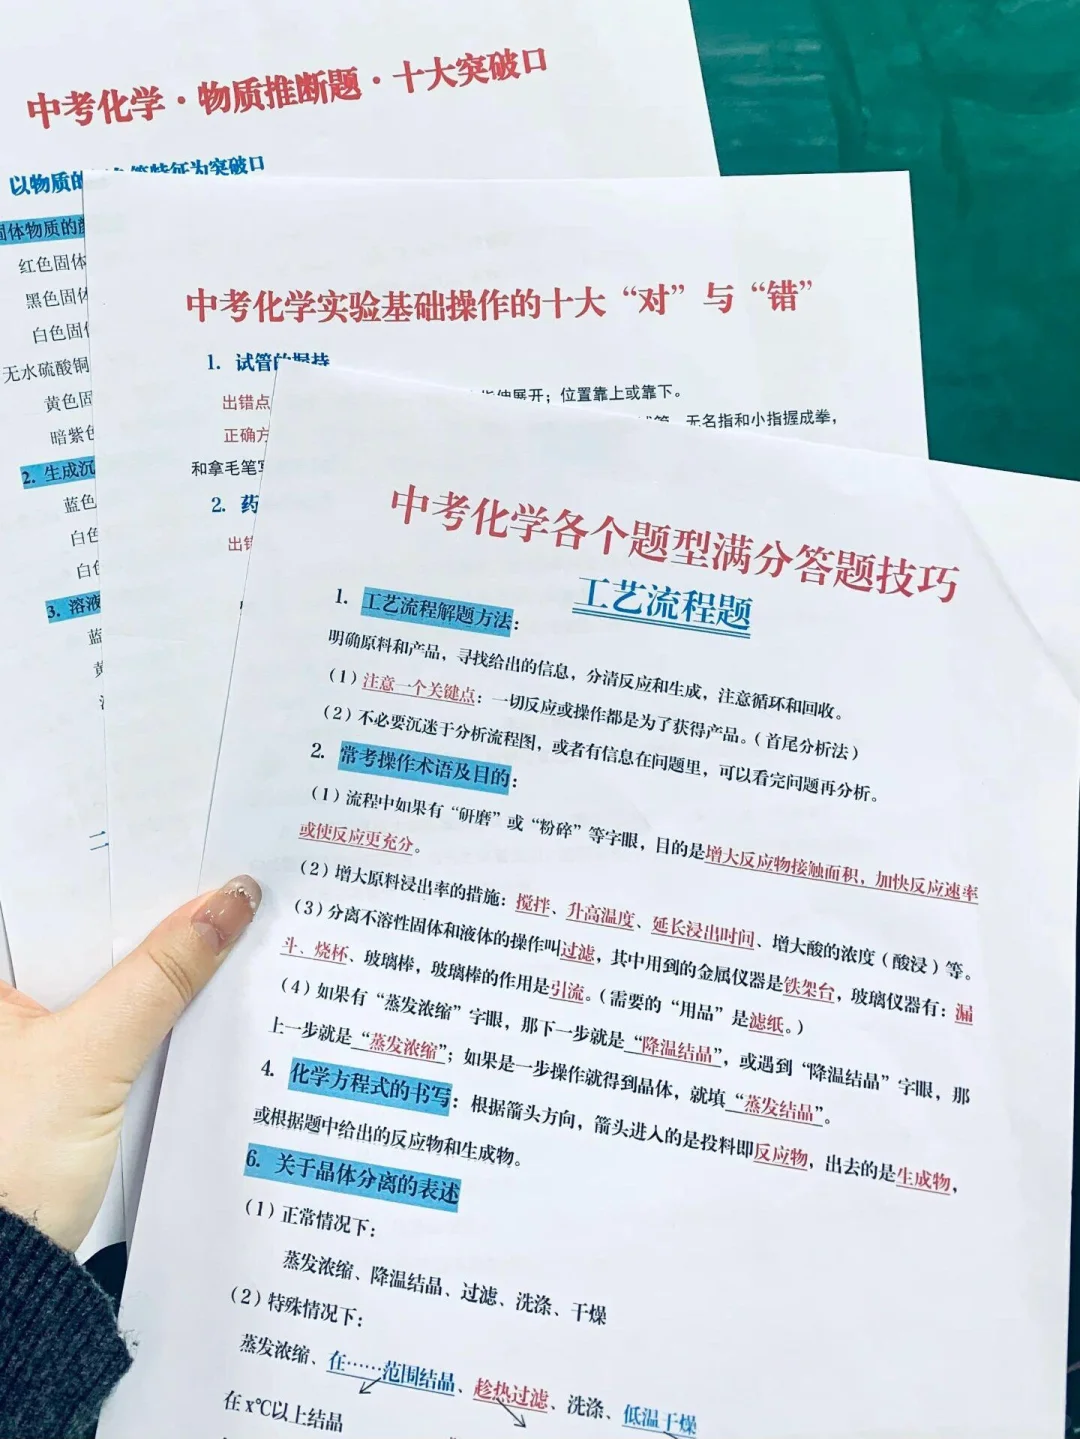 中考化学·物质推断题·十大突破口
以物质的
特征为突破口
固体物质的颜
红色固体
黑色固体
白色固体
无水硫酸铜
黄色固
暗紫色
2. 生成沉
蓝色
白色
白色
3. 溶液
蓝
黄
二
中考化学实验基础操作的十大“对”与“错”
1. 试管的握持
出错点
伸展开；位置靠上或靠下。
正确方
无名指和小指握成拳，
和拿毛笔写
2. 药
出错
中考化学各个题型满分答题技巧
工艺流程题
1. 工艺流程解题方法：
明确原料和产品，寻找给出的信息，分清反应和生成，注意循环和回收。
（1）注意一个关键点：一切反应或操作都是为了获得产品。（首尾分析法）
（2）不必要沉迷于分析流程图，或者有信息在问题里，可以看完问题再分析。
2. 常考操作术语及目的：
（1）流程中如果有“研磨”或“粉碎”等字眼，目的是增大反应物接触面积，加快反应速率
或使反应更充分。
（2）增大原料浸出率的措施：搅拌、升高温度、延长浸出时间、增大酸的浓度（酸浸）等。
（3）分离不溶性固体和液体的操作叫过滤，其中用到的金属仪器是铁架台，玻璃仪器有：漏
斗、烧杯、玻璃棒，玻璃棒的作用是引流。（需要的“用品”是滤纸。）
（4）如果有“蒸发浓缩”字眼，那下一步就是“降温结晶”，或遇到“降温结晶”字眼，那
上一步就是“蒸发浓缩”；如果是一步操作就得到晶体，就填“蒸发结晶”。
4. 化学方程式的书写：根据箭头方向，箭头进入的是投料即反应物，出去的是生成物，
或根据题中给出的反应物和生成物。
6. 关于晶体分离的表述
（1）正常情况下：
蒸发浓缩、降温结晶、过滤、洗涤、干燥
（2）特殊情况下：
蒸发浓缩、在……范围结晶、趁热过滤、洗涤、低温干燥
在x℃以上结晶